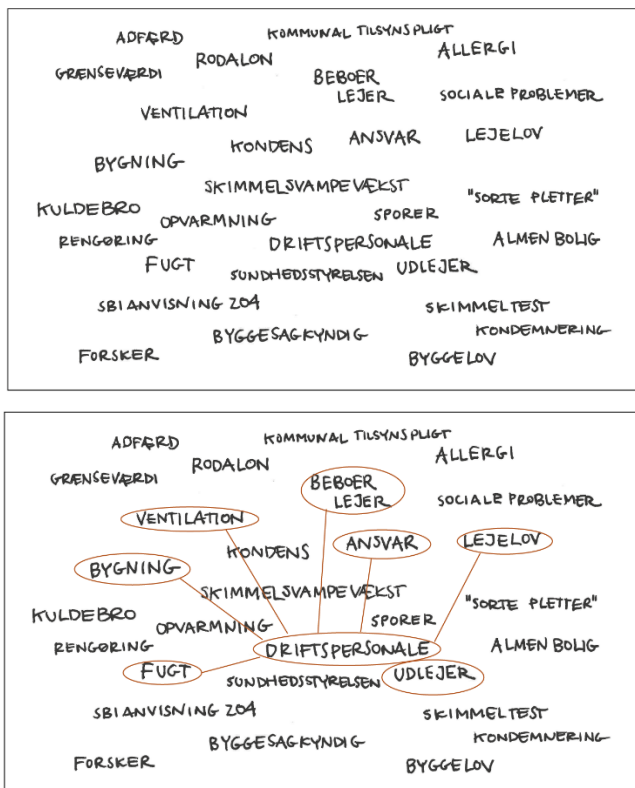 ADFÆRD
KOMMUNAL TILSYNSPLIGT
ALLERGI
GRÆNSEVÆRDI
RODALON
BEBOER
LEJER
SOCIALE PROBLEMER
VENTILATION
KONDENS
ANSVAR
LEJELOV
BYGNING
SKIMMELSVAMPEVÆKST
"SORTE PLETTER"
KULDEBRO
OPVARMNING
SPORER
RENGØRING
DRIFTSPERSONALE
ALMEN BOLIG
FUGT
SUNDHEDSSTYRELSEN
UDLEJER
SBI ANVISNING 204
SKIMMELTEST
BYGGESAGKYNDIG
KONDEMNERING
FORSKER
BYGGELOV
ADFÆRD
KOMMUNAL TILSYNSPLIGT
ALLERGI
GRÆNSEVÆRDI
RODALON
BEBOER
LEJER
SOCIALE PROBLEMER
VENTILATION
KONDENS
ANSVAR
LEJELOV
BYGNING
SKIMMELSVAMPEVÆKST
"SORTE PLETTER"
KULDEBRO
OPVARMNING
SPORER
RENGØRING
DRIFTSPERSONALE
ALMEN BOLIG
FUGT
SUNDHEDSSTYRELSEN
UDLEJER
SBI ANVISNING 204
SKIMMELTEST
BYGGESAGKYNDIG
KONDEMNERING
FORSKER
BYGGELOV